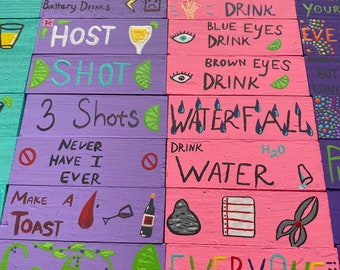 Battery Drinks
HOST
SHOT
3 Shots
NEVER
HAVE I
EVER
MAKE A
TOAST
DRINK
BLUE EYES
DRINK
BROWN EYES
DRINK
WATERFALL
DRINK H2O
WATER
EVERYONE
YOUR
EVE
BUT